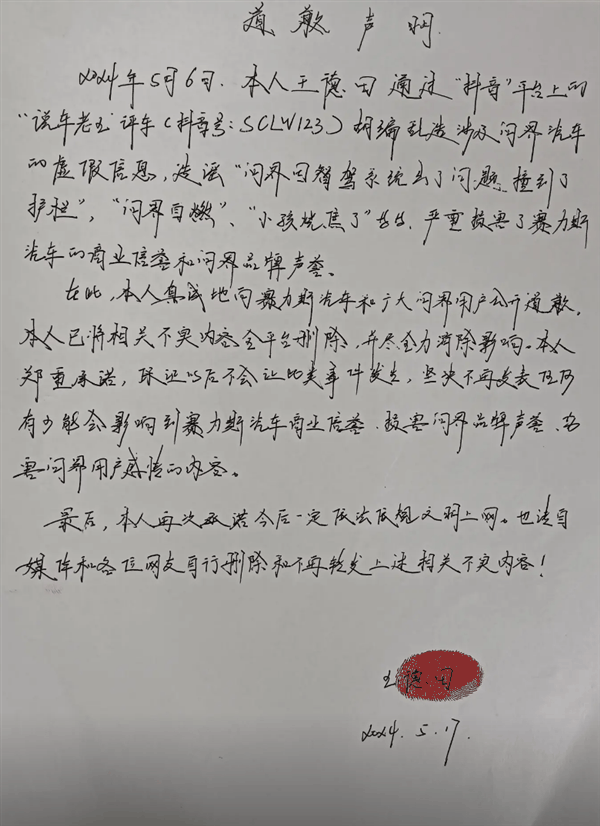 道歉声明
2024年5月6日，本人王德田通过“抖音”平台上的
“说车老王”评车（抖音号：SCLW123）胡编乱造涉及问界汽车
的虚假信息，造谣“问界因智驾系统出了问题撞到了
护栏”，“问界自燃”、“小孩烧焦了”等等，严重损害了赛力斯
汽车的商业信誉和问界品牌声誉。
在此，本人真诚地向赛力斯汽车和广大问界用户公开道歉，
本人已将相关不实内容全平台删除，并尽全力消除影响。本人
郑重承诺，保证以后不会让此类事件发生，坚决不再发表任何
有可能会影响到赛力斯汽车商业信誉、损害问界品牌声誉、伤
害问界用户感情的内容。
最后，本人再次承诺今后一定依法依规文明上网。也请自
媒体和各位网友自行删除和不再转发上述相关不实内容！
王德田
2024.5.17